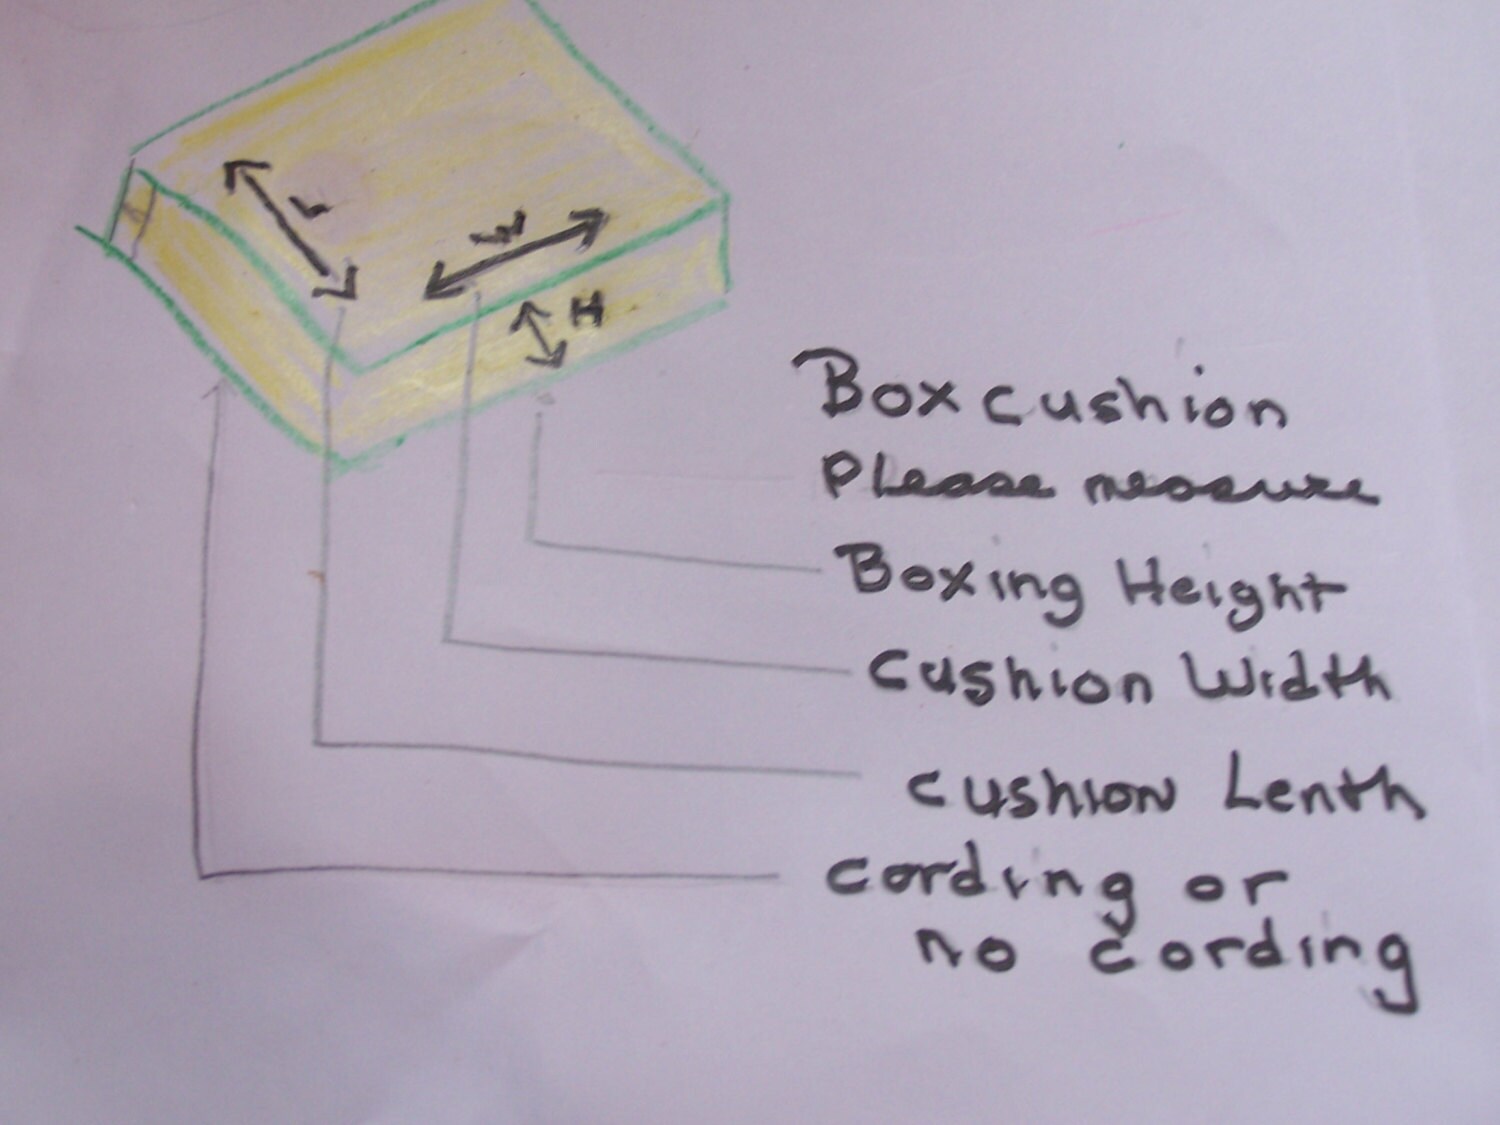 L
W
H
Box cushion
Please measure
Boxing Height
Cushion Width
Cushion Lenth
cording or
no cording